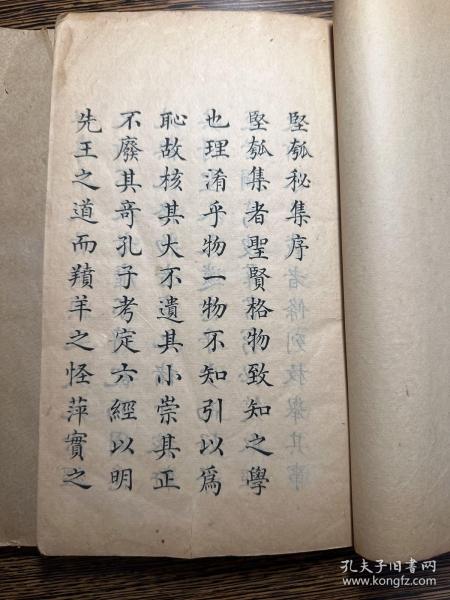 堅瓠秘集序
堅瓠集者聖賢格物致知之學
也理淆乎物一物不知引以爲
恥故核其大不遺其小崇其正
不廢其奇孔子考定六經以明
先王之道而羵羊之怪萍實之
孔夫子旧书网
www.kongfz.com